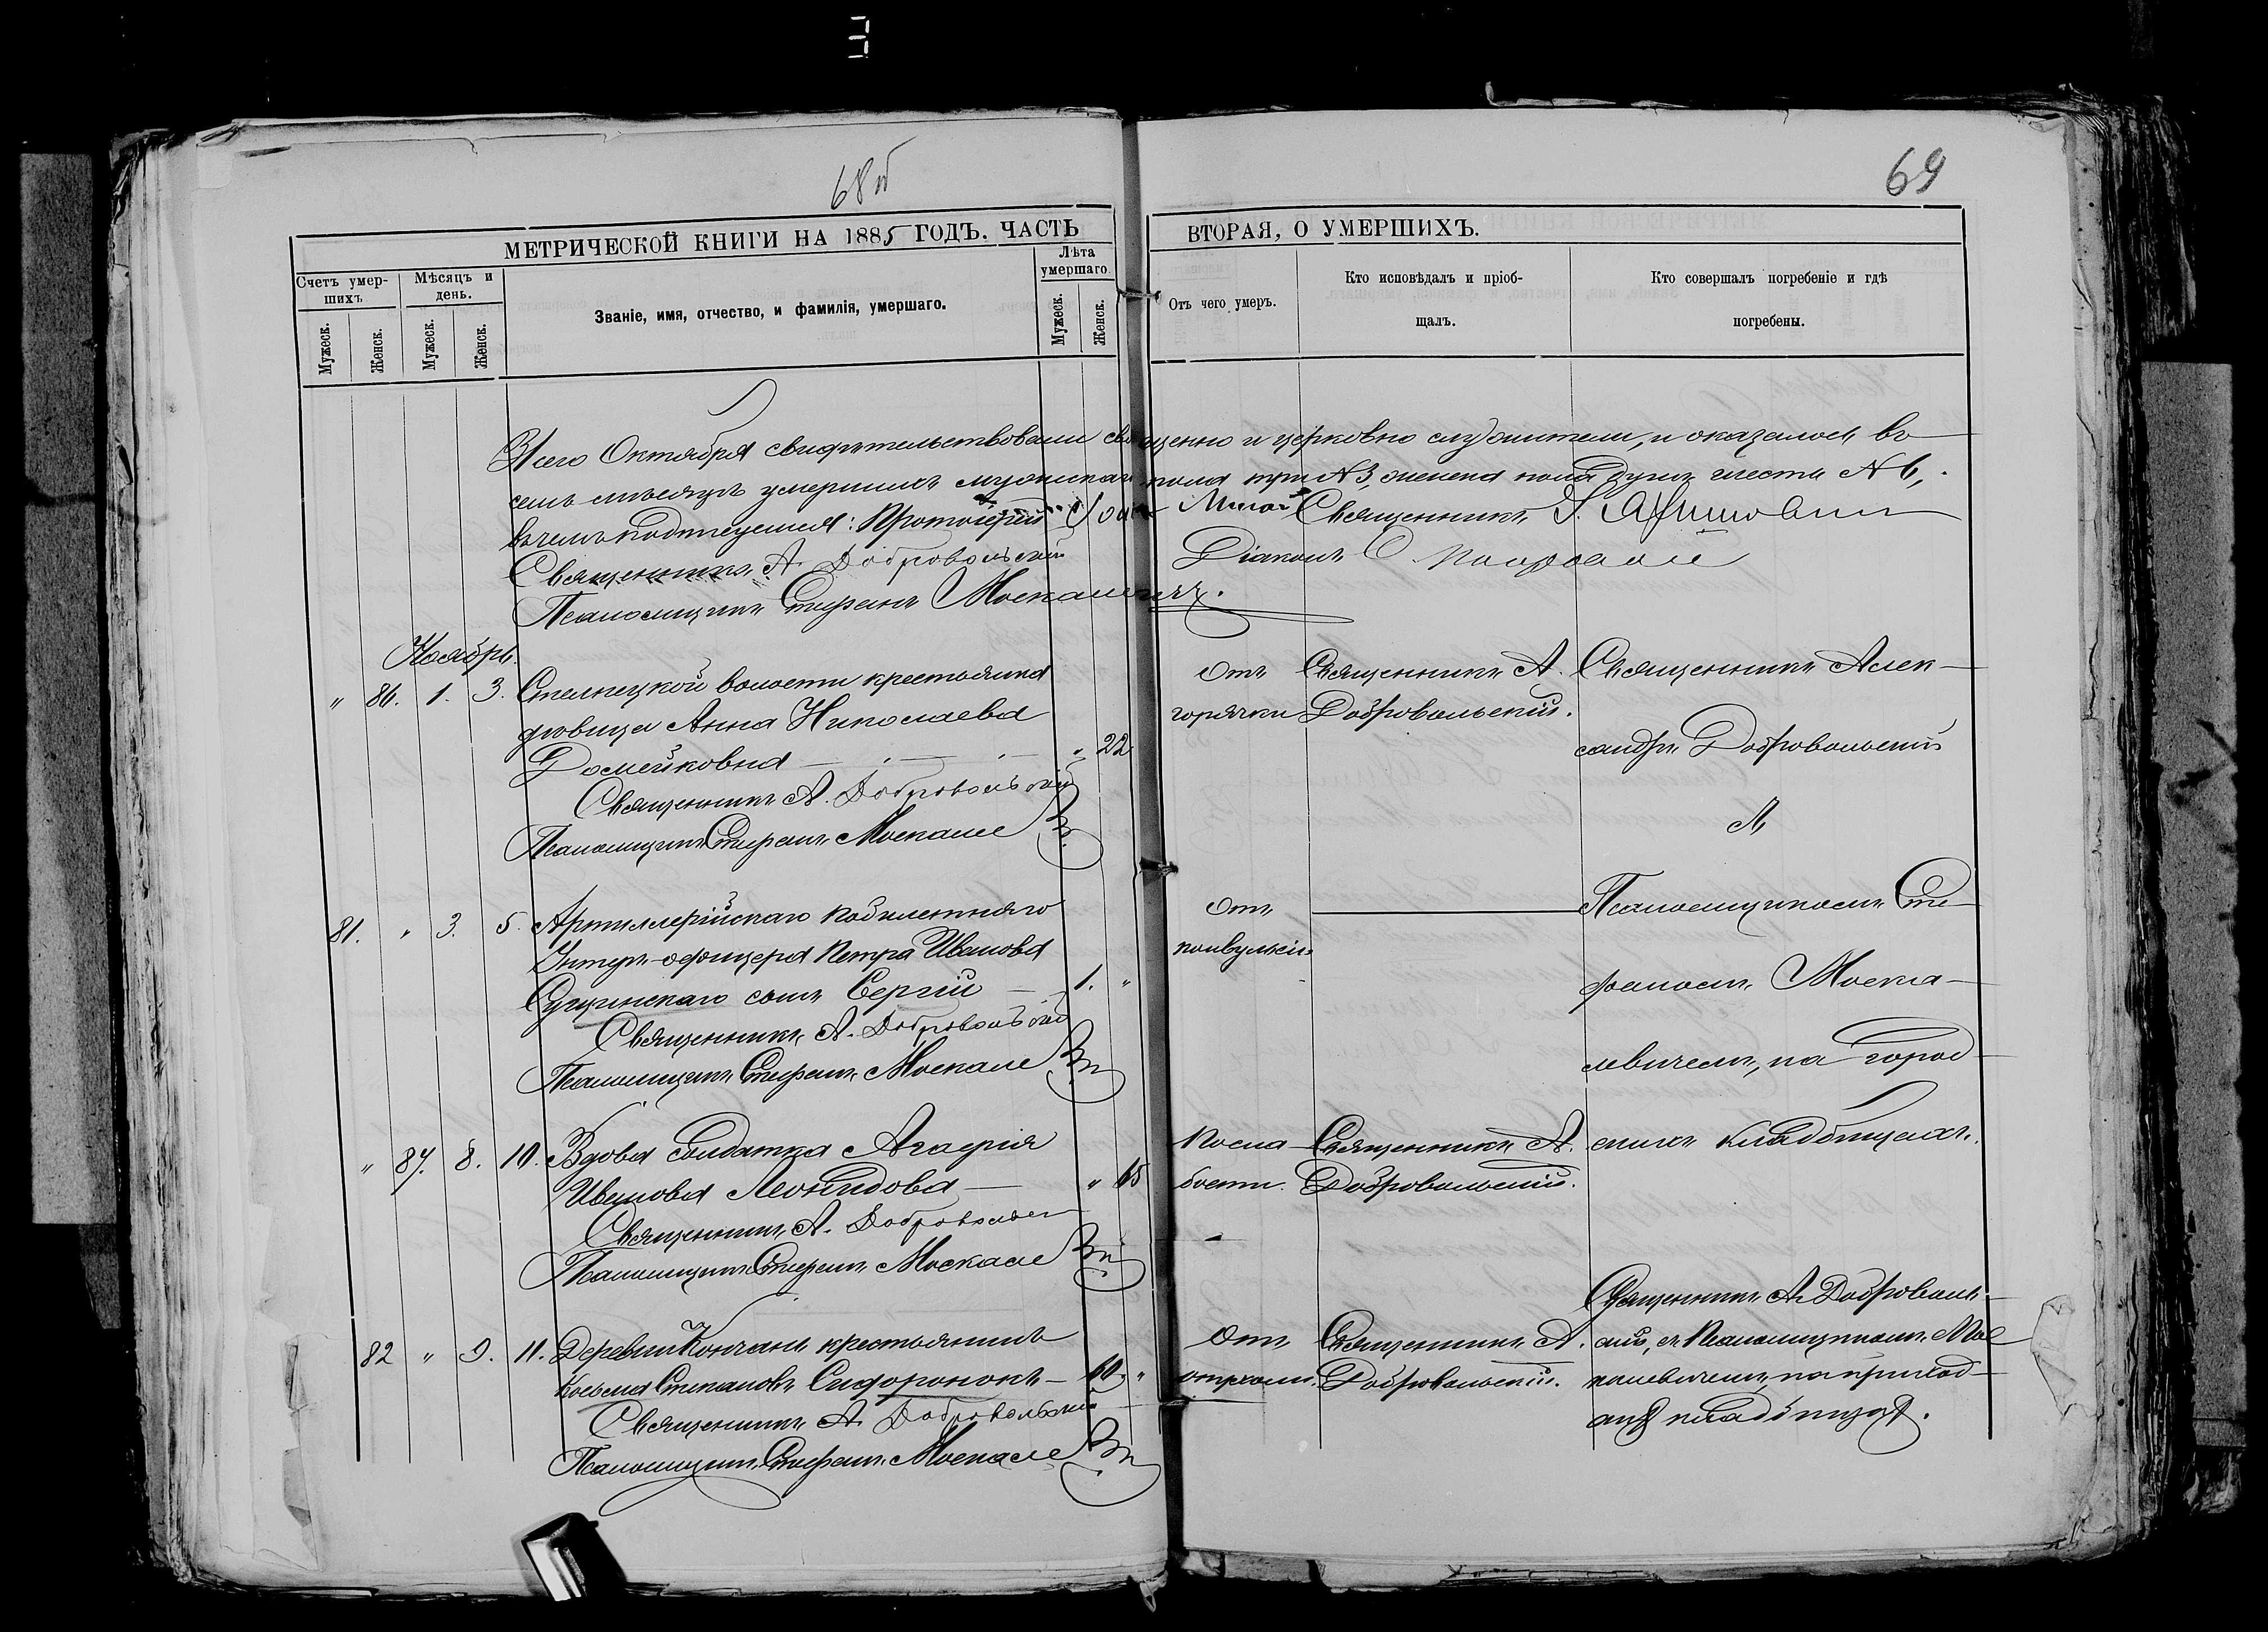 68об
69
МЕТРИЧЕСКОЙ КНИГИ НА 1885 ГОДЪ. ЧАСТЬ
ВТОРАЯ, О УМЕРШИХЪ.
Счетъ умер-
шихъ
Мѣсяцъ и
день.
Званіе, имя, отчество, и фамилія, умершаго.
Лѣта
умершаго.
Мужеск.
Женск.
Мужеск.
Женск.
Мужеск.
Женск.
Отъ чего умеръ.
Кто исповѣдалъ и пріоб-
щалъ.
Кто совершалъ погребеніе и гдѣ
погребены.
Сего Октября свидѣтельствовали священно и церковно служители, и оказалось въ
семъ мѣсяцѣ умершихъ мужскаго пола три № 3, женска пола душъ шесть № 6,
въ чемъ подписуемся: Протоіерей Священникъ
Священникъ А. Добровольскій Діаконъ
Псаломщикъ Стефанъ Москалевичъ.
Ноябрь.
" 86. 1. 3. крестьянка
дѣвица Анна Николаева
Домейковна " 22
Священникъ А. Добровольскій
Псаломщикъ Стефанъ Москале
Отъ
горячки
Священникъ А.
Добровольскій.
Священникъ Алек-
сандръ Добровольскій
81. " 3. 5. Артиллерійскаго
Унтеръ-офицера Петра Иванова
сынъ Сергій 1. "
Священникъ А. Добровольскій
Псаломщикъ Стефанъ Москале
Отъ
конвульсіи
съ
Псаломщикомъ Сте-
фаномъ Моска-
левичемъ, на город-
скихъ кладбищахъ.
" 87. 8. 10. Вдова Солдатка Агафія
Иванова Леонидова " 65
Священникъ А. Добровольск
Псаломщикъ Стефанъ Москале
Священникъ А.
Добровольскій.
82 " 9. 11. Деревни Кончанъ крестьянинъ
Косьма Степановъ Сидоронокъ 60 "
Священникъ А. Добровольскій
Псаломщикъ Стефанъ Москале
Отъ
Священникъ А.
Добровольскій.
Священникъ А. Доброволь-
скій, съ Псаломщикомъ Мос
калевичемъ, на приход-
кладбищѣ.